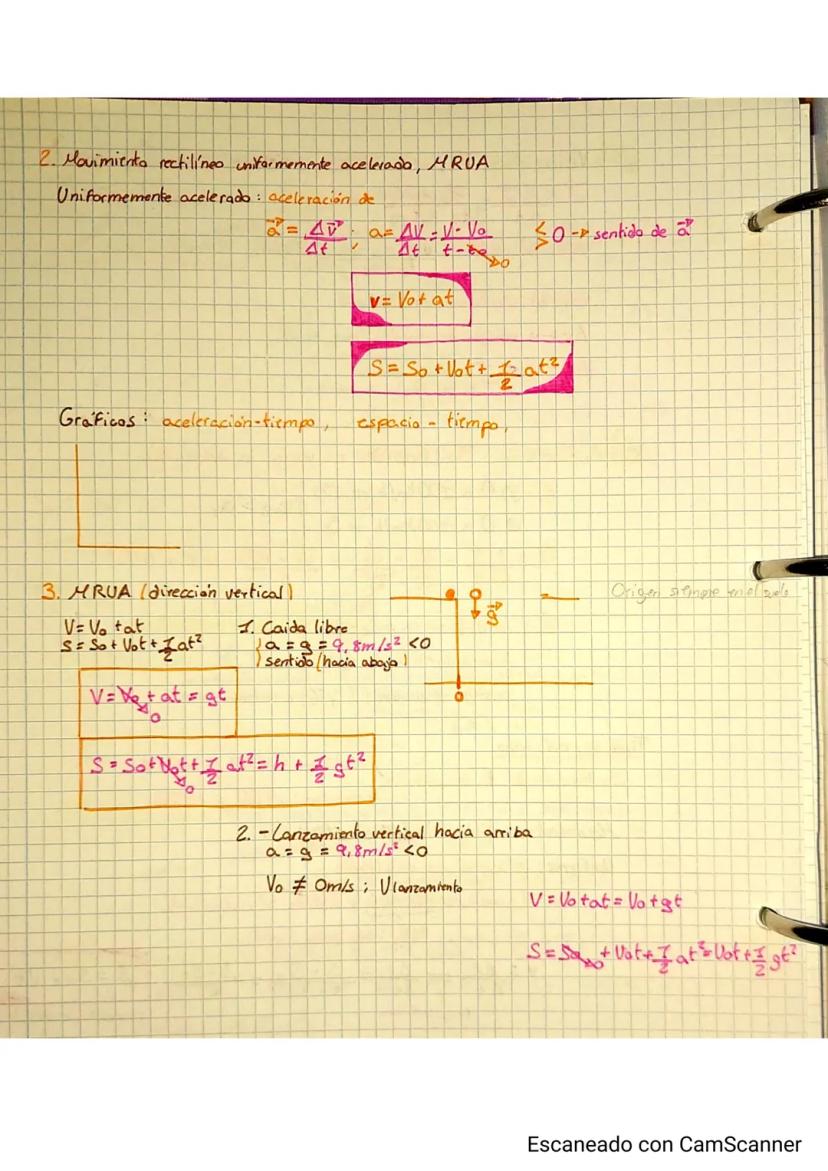 2. Movimiento rectilíneo uniformemente acelerado, MRUA
Uniformemente acelerado: aceleración de
a⃗ = Δv⃗/Δt ; a = ΔV/Δt = V-V₀/t-t₀ →0 ≶ 0 → sentido de a⃗
v = V₀ + at
S = S₀ + V₀t + 1/2 at²
Gráficos: aceleración-tiempo, espacio - tiempo,
3. MRUA (dirección vertical)
g⃗
Origen siempre en el suelo
V = V₀ + at
S = S₀ + V₀t + 1/2 at²
1. Caida libre
a = g = 9,8m/s² <0
sentido (hacia abajo)
0
V = V₀ + at = gt
0
S = S₀ + V₀t + 1/2 at² = h + 1/2 gt²
0
2. - Lanzamiento vertical hacia arriba
a = g = 9,8m/s² <0
V₀ ≠ 0m/s ; Vlanzamiento
V = V₀ + at = V₀ + gt
S = S₀ →0 + V₀t + 1/2 at² = V₀t + 1/2 gt²
Escaneado con CamScanner